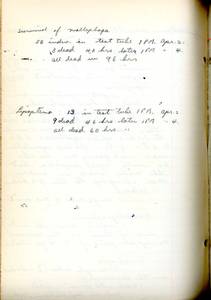 Survival of mallophaga
50 indiv. in test tube 1 PM. Apr. 2.
dead 46 hrs later 1 PM " 4.
" all dead in 96 hrs

13 in test tube 1 PM. Apr. 2
9 dead 46 hrs later 1 PM " 4.
all dead 60 hrs.